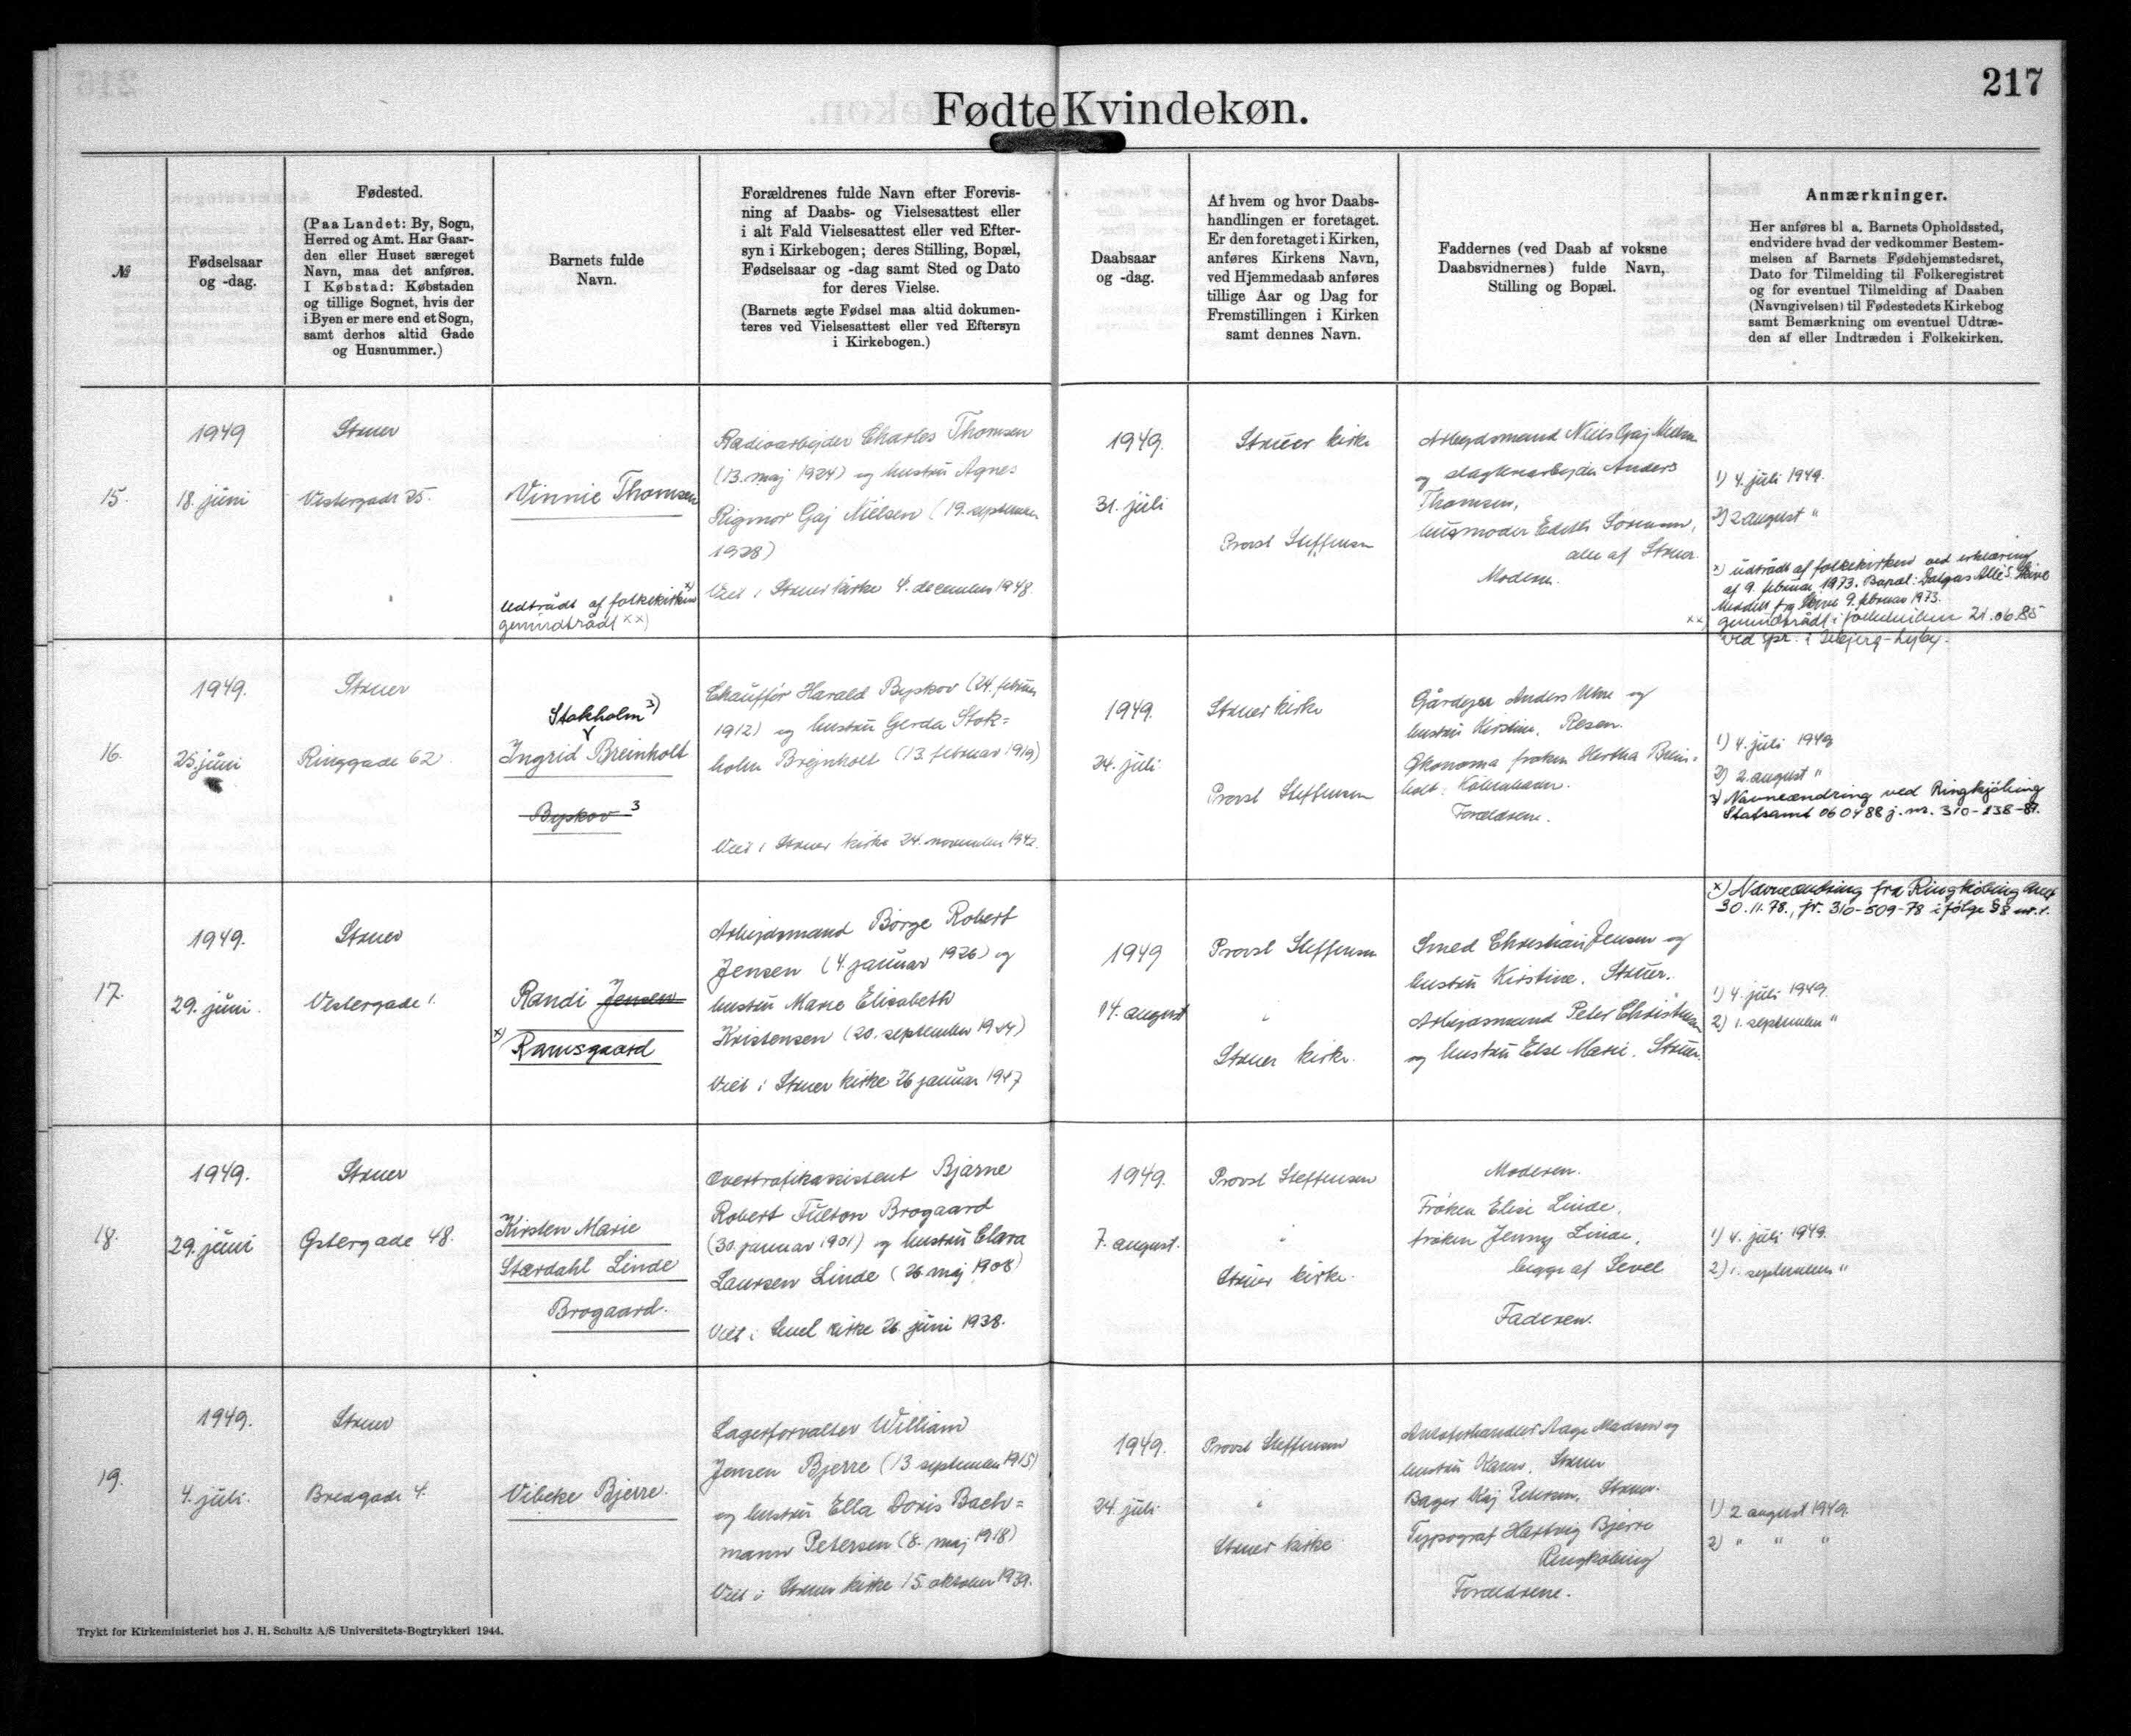 217
Fødte Kvindekøn.
№
Fødselsaar
og -dag.
Fødested.
(Paa Landet: By, Sogn,
Herred og Amt. Har Gaar-
den eller Huset særeget
Navn, maa det anføres.
I Købstad: Købstaden
og tillige Sognet, hvis der
i Byen er mere end et Sogn,
samt derhos altid Gade
og Husnummer.)
Barnets fulde
Navn.
Forældrenes fulde Navn efter Forevis-
ning af Daabs- og Vielsesattest eller
i alt Fald Vielsesattest eller ved Efter-
syn i Kirkebogen; deres Stilling, Bopæl,
Fødselsaar og -dag samt Sted og Dato
for deres Vielse.
(Barnets ægte Fødsel maa altid dokumen-
teres ved Vielsesattest eller ved Eftersyn
i Kirkebogen.)
Daabsaar
og -dag.
Af hvem og hvor Daabs-
handlingen er foretaget.
Er den foretaget i Kirken,
anføres Kirkens Navn,
ved Hjemmedaab anføres
tillige Aar og Dag for
Fremstillingen i Kirken
samt dennes Navn.
Faddernes (ved Daab af voksne
Daabsvidnernes) fulde Navn,
Stilling og Bopæl.
Anmærkninger.
Her anføres bl a. Barnets Opholdssted,
endvidere hvad der vedkommer Bestem-
melsen af Barnets Fødehjemstedsret,
Dato for Tilmelding til Folkeregistret
og for eventuel Tilmelding af Daaben
(Navngivelsen) til Fødestedets Kirkebog
samt Bemærkning om eventuel Udtræ-
den af eller Indtræden i Folkekirken.
15.
1949
18. juni
Struer
Vestergade 25.
Vinnie Thomsen
Udtrådt af folkekirken x)
genindtrådt xx)
Radioarbejder Charles Thomsen
(13. maj 1924) og hustru Agnes
Rigmor Gaj Nielsen (19. september
1928)
Viet i Struer kirke 4. december 1948.
1949.
31. juli
Struer kirke
Provst Steffensen
Arbejdsmand Niels Gaj Nielsen
og slagteriarbejder Anders
Thomsen,
husmoder Edith Sørensen,
alle af Struer.
Moderen.
1) 4. juli 1949.
2) 2 august "
x) udtrådt af folkekirken ved erklæring
af 9. februar 1973. Bopæl: Dalgas Allé 5, Skive
Meddelt fra Skive 9. februar 1973.
xx) genindtrådt i folkekirken 21.06.85
ved spr. i Resen
16.
1949.
25. juni
Struer
Ringgade 62.
Stokholm 3)
Ingrid Breinholt
Byskov 3
Chauffør Harald Byskov (24. februar
1912) og hustru Gerda Stok=
holm Brejnholt (13. februar 1919)
Viet i Struer kirke 24. november 1942.
1949.
24. juli
Struer kirke
Provst Steffensen
Gårdejer Anders og
hustru Kirstine, Resen.
Økonoma frøken Hertha Brein=
holt, København.
Forældrene.
1) 4. juli 1949
2) 2. august "
3) Navneændring ved Ringkjøbing
Statsamt 060488 j. nr. 310-238-87.
17.
1949.
29. juni.
Struer
Vestergade 1.
Randi Jensen
x) Ramsgaard
Arbejdsmand Børge Robert
Jensen (4. januar 1926) og
hustru Marie Elisabeth
Kristensen (20. september 1924)
Viet i Struer kirke 26 januar 1947
1949
14. august
Provst Steffensen
"
Struer kirke.
Smed Christian Jensen og
hustru Kirstine, Struer.
Arbejdsmand Peter Christensen
og hustru Else Marie, Struer.
x) Navneændring fra Ringkøbing Amt
30.11.78., jr. 310-509-78 ifølge §8 nr. 1.
1) 4. juli 1949.
2) 1. september "
18.
1949.
29. juni
Struer
Østergade 48.
Kirsten Marie
Stærdahl Linde
Brogaard.
Overtrafikassistent Bjarne
Robert Fulton Brogaard
(30. januar 1901) og hustru Clara
Laursen Linde (26 maj 1908)
Viet i Sevel kirke 26. juni 1938.
1949.
7. august.
Provst Steffensen
"
Struer kirke.
Moderen.
Frøken Elise Linde,
frøken Jenny Linde,
begge af Sevel
Faderen.
1) 4. juli 1949.
2) 1. september "
19.
1949.
4. juli.
Struer
Bredgade 4.
Vibeke Bjerre.
Lagerforvalter William
Jensen Bjerre (13 september 1915)
og hustru Ella Doris Bach=
mann Petersen (8. maj 1918)
Viet i Struer kirke 15. oktober 1939.
1949.
24. juli
Provst Steffensen
"
Struer kirke
Autoforhandler Aage Madsen og
hustru Karen, Struer
Bager Kaj Petersen, Struer.
Typograf Hartvig Bjerre
Ringkøbing
Forældrene.
1) 2 august 1949.
2) " " "
Trykt for Kirkeministeriet hos J. H. Schultz A/S Universitets-Bogtrykkeri 1944.